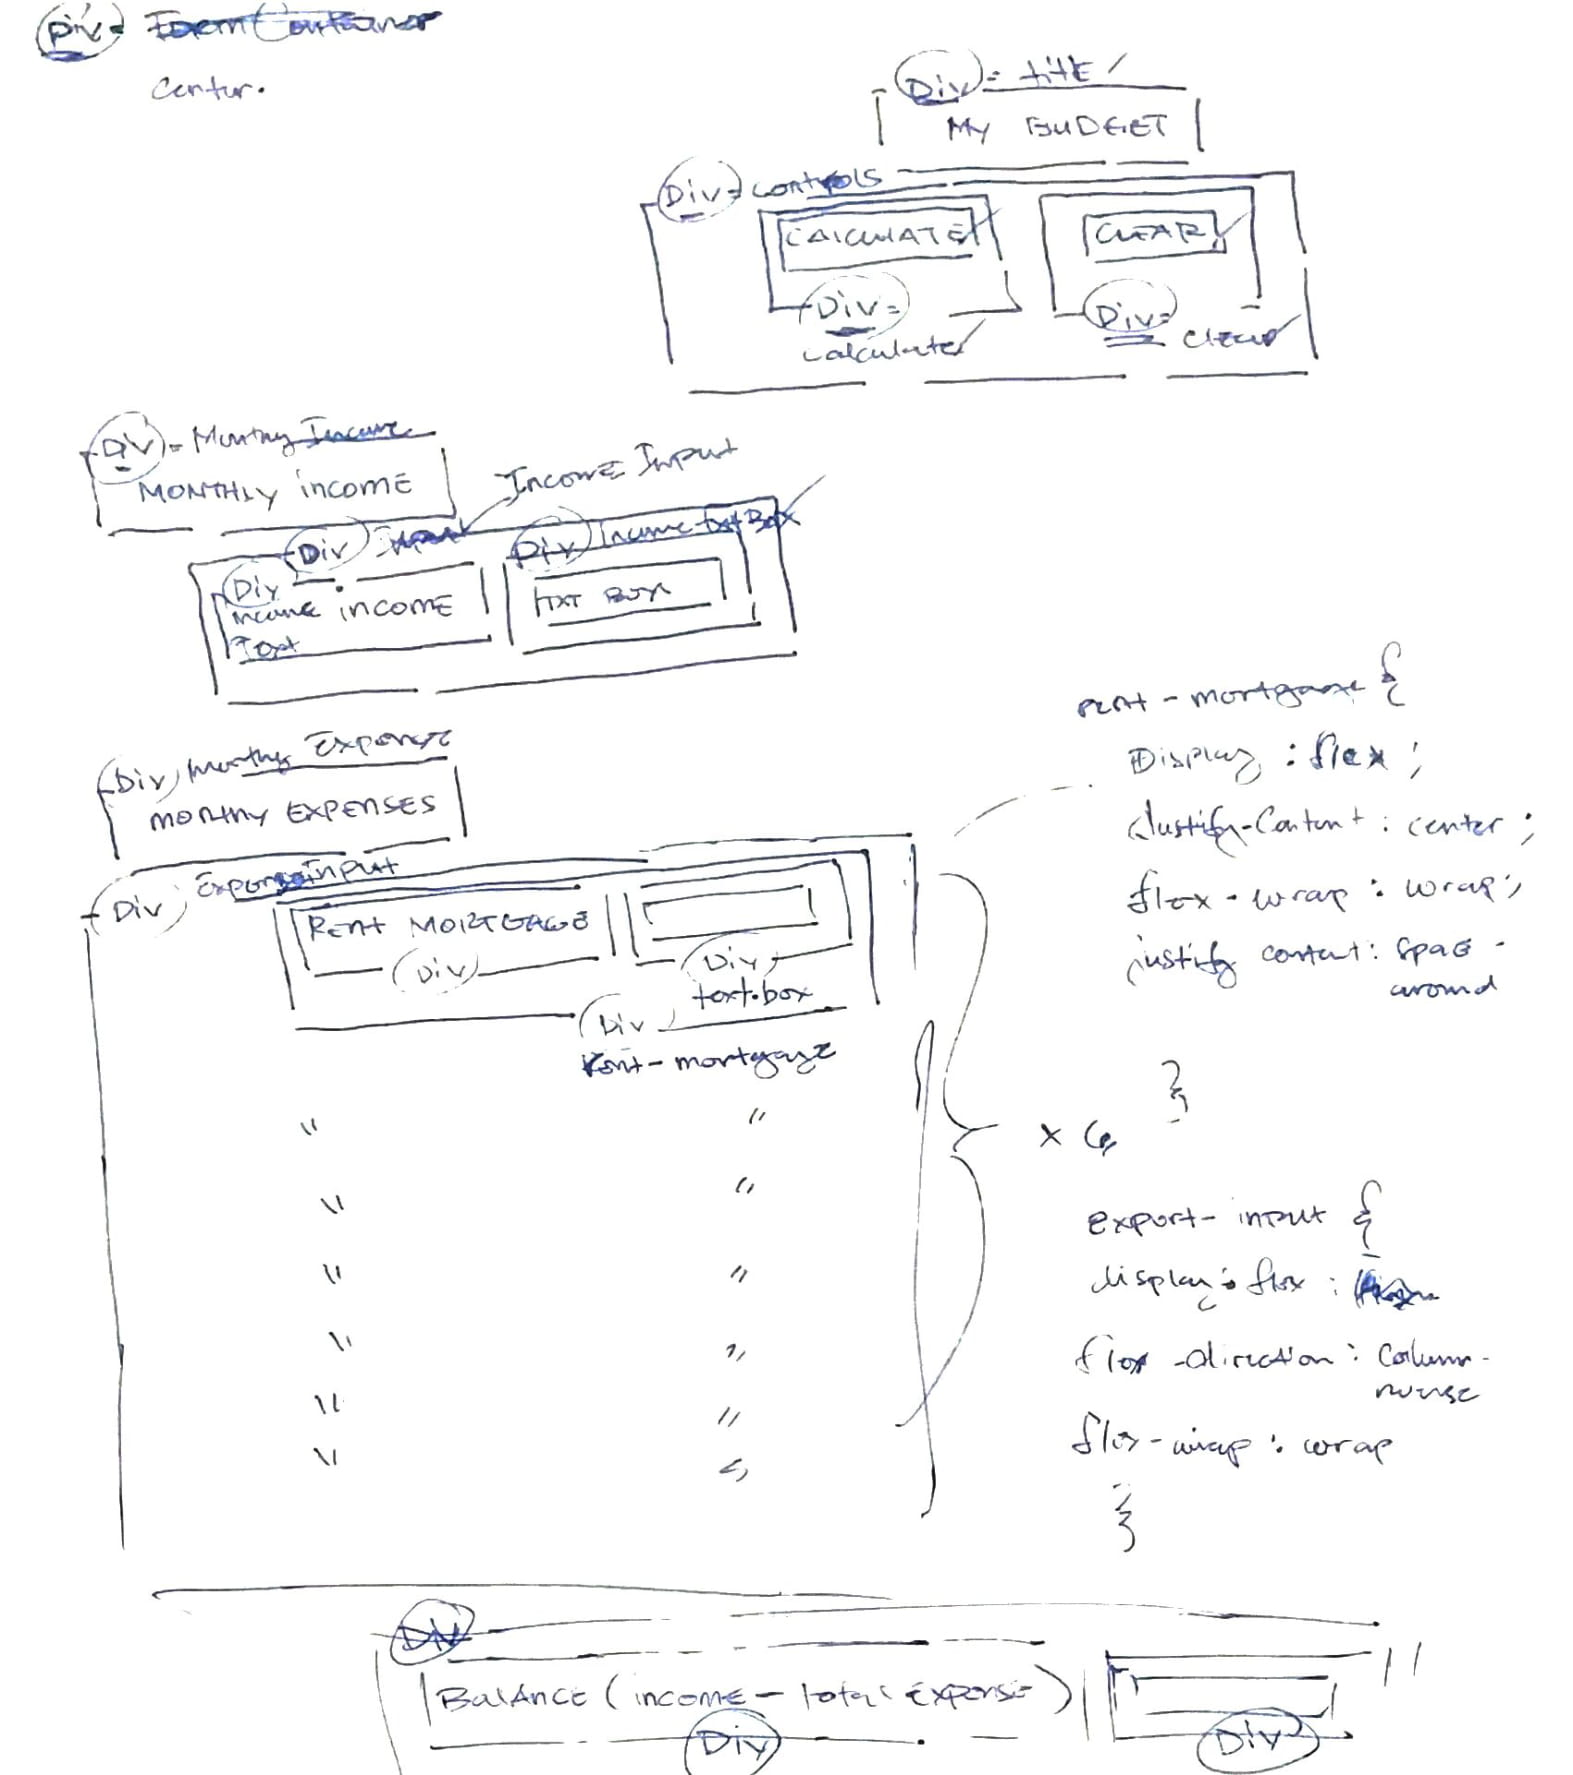 Div = Form Container
Center.
Div = title
MY BUDGET
Div = controls
CALCULATE
CLEAR
Div =
calculate
Div =
clear
Div = Monthly Income
MONTHLY income
Income Input
Div Input
Div Income text Box
Div
income income
Text
TXT BOX
Div Monthly Expense
MONTHLY EXPENSES
Div Expense Input
RENT MORTGAGE
Div
Div
text.box
Div
Rent-mortgage
" "
" "
" "
" "
" "
" "
x 6
rent-mortgage {
Display : flex ;
Justify-Content : center ;
flex-wrap : wrap;
justify content: space-
around
}
export-input {
display: flex ;
flex-direction : column-
reverse
flex-wrap : wrap
}
Div
Balance (income - total Expense)
Div
Div